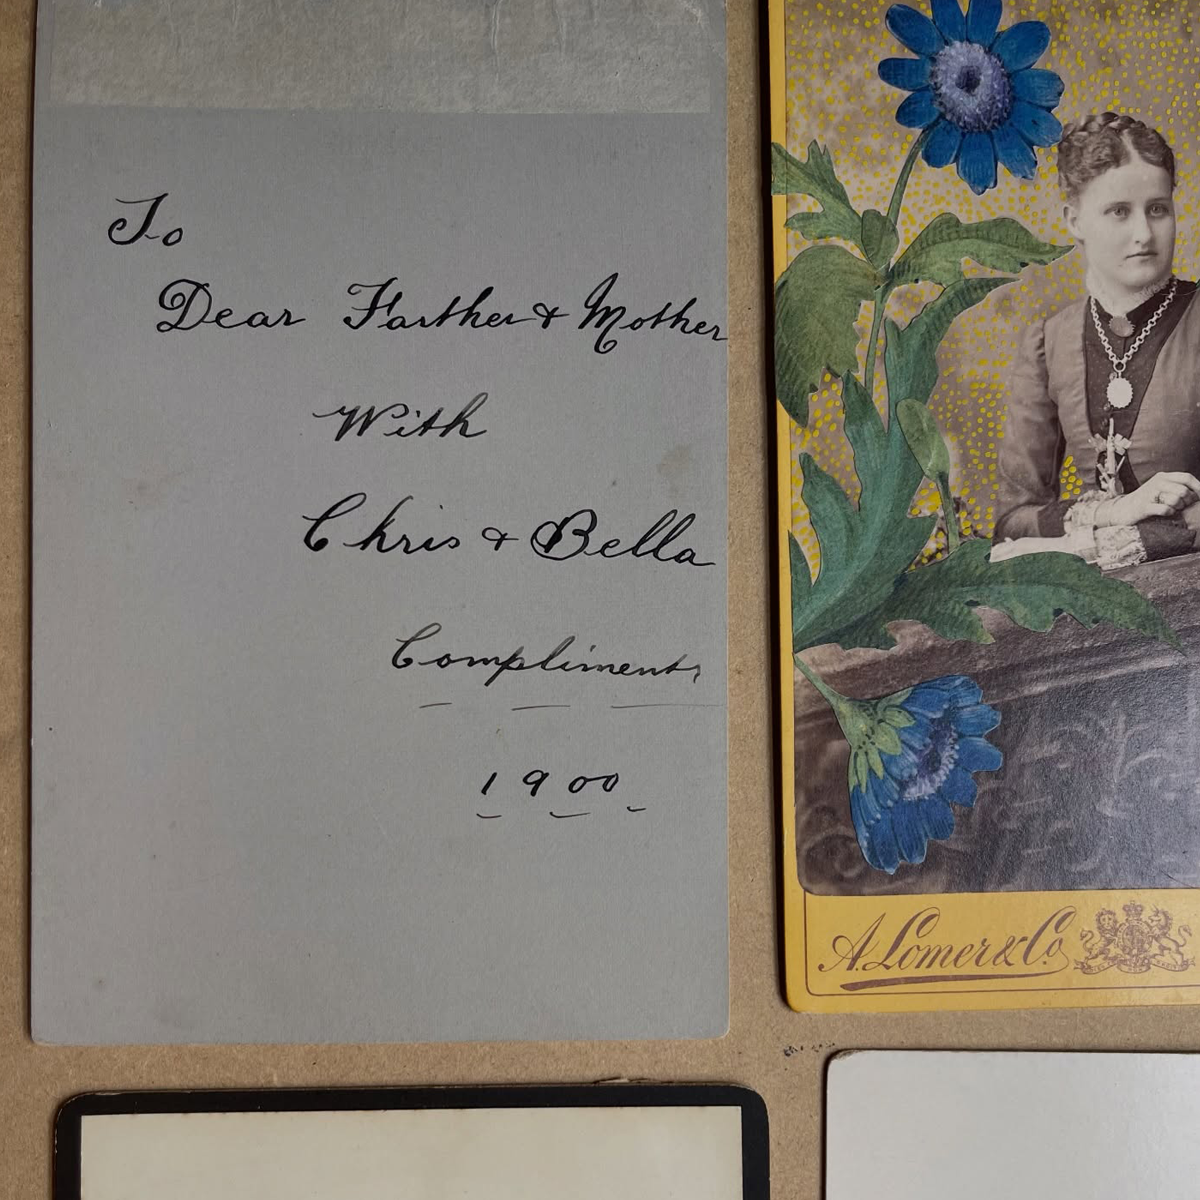 To
Dear Farther & Mother
With
Chris & Bella
Compliments
1900
A. Lomer & Co